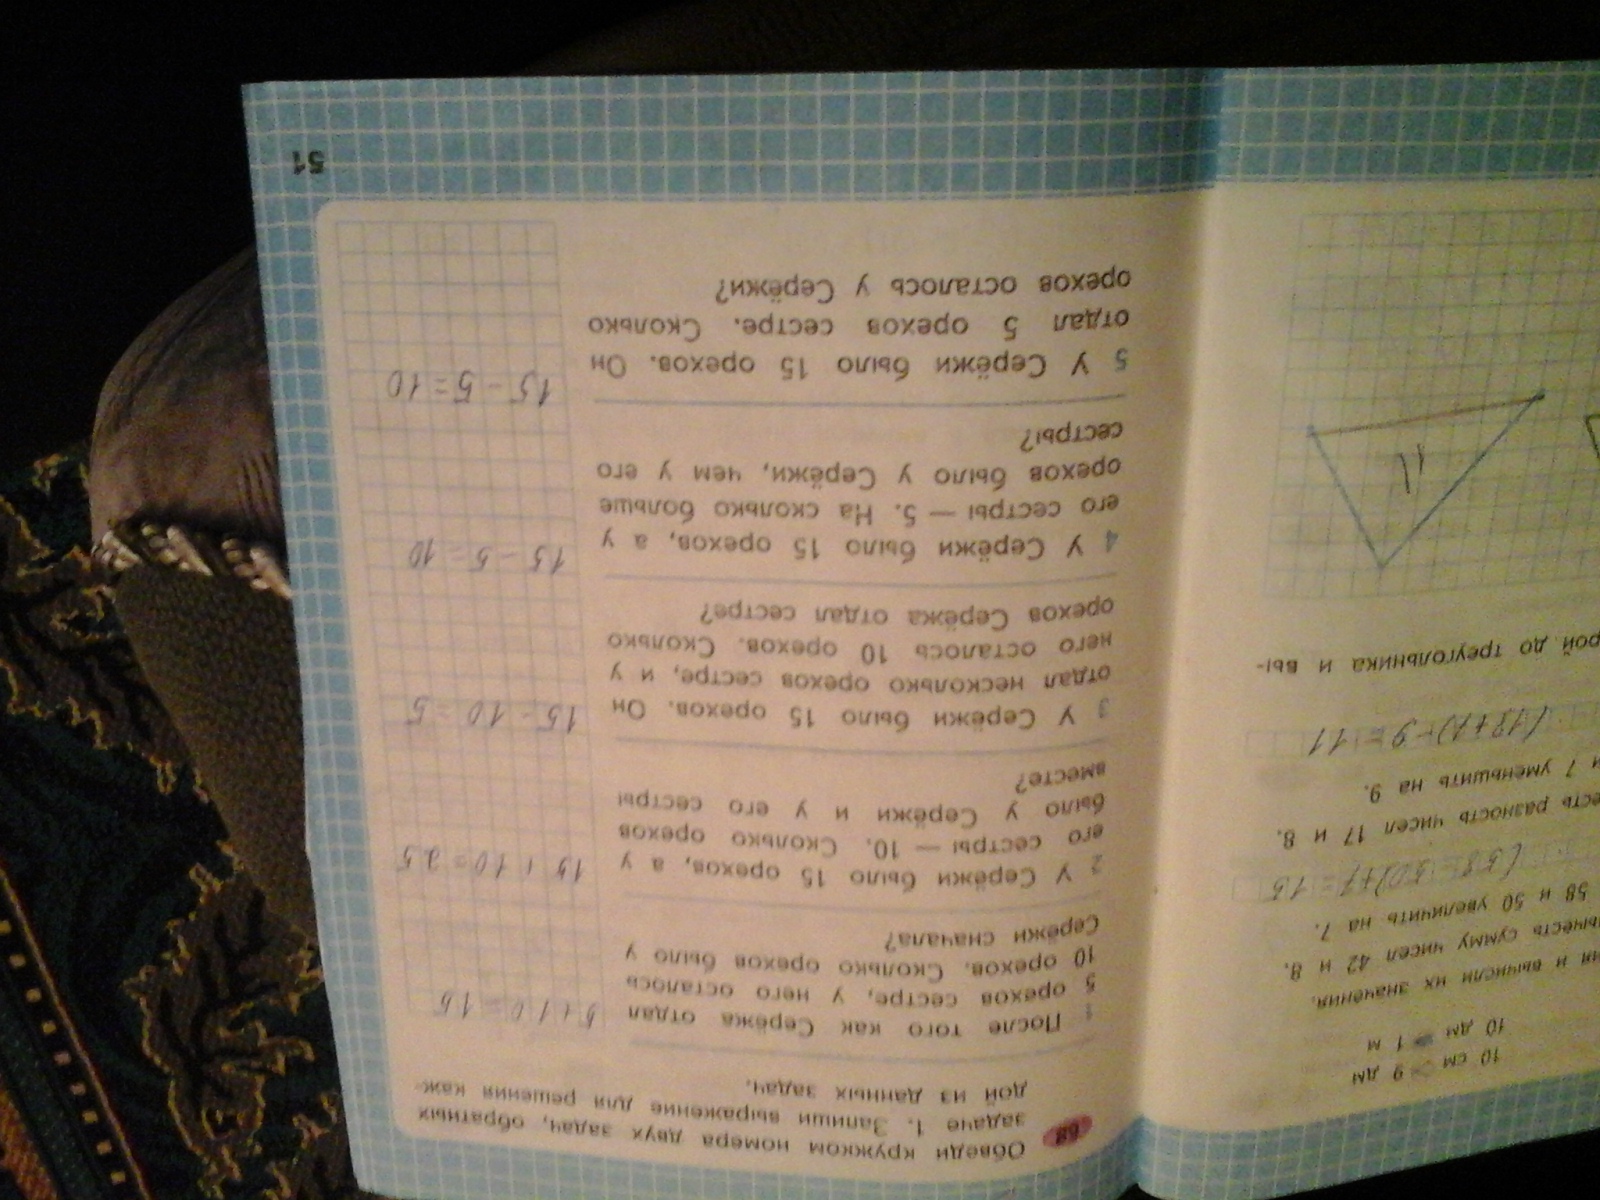 10 см 9 дм
10 дм 1 м
ия и вычисли их значения.
ычесть сумму чисел 42 и 8.
58 и 50 увеличить на 7.
(58-50)+7=15
есть разность чисел 17 и 8.
и 7 уменьшить на 9.
(13+7)-9=11
рой до треугольника и вы-
68 Обведи кружком номера двух задач, обратных
задаче 1. Запиши выражение для решения каж-
дой из данных задач.
1 После того как Серёжа отдал
5 орехов сестре, у него осталось
10 орехов. Сколько орехов было у
Серёжи сначала?
5+10=15
2 У Серёжи было 15 орехов, а у
его сестры — 10. Сколько орехов
было у Серёжи и у его сестры
вместе?
15+10=25
3 У Серёжи было 15 орехов. Он
отдал несколько орехов сестре, и у
него осталось 10 орехов. Сколько
орехов Серёжа отдал сестре?
15-10=5
4 У Серёжи было 15 орехов, а у
его сестры — 5. На сколько больше
орехов было у Серёжи, чем у его
сестры?
15-5=10
5 У Серёжи было 15 орехов. Он
отдал 5 орехов сестре. Сколько
орехов осталось у Серёжи?
15-5=10
51